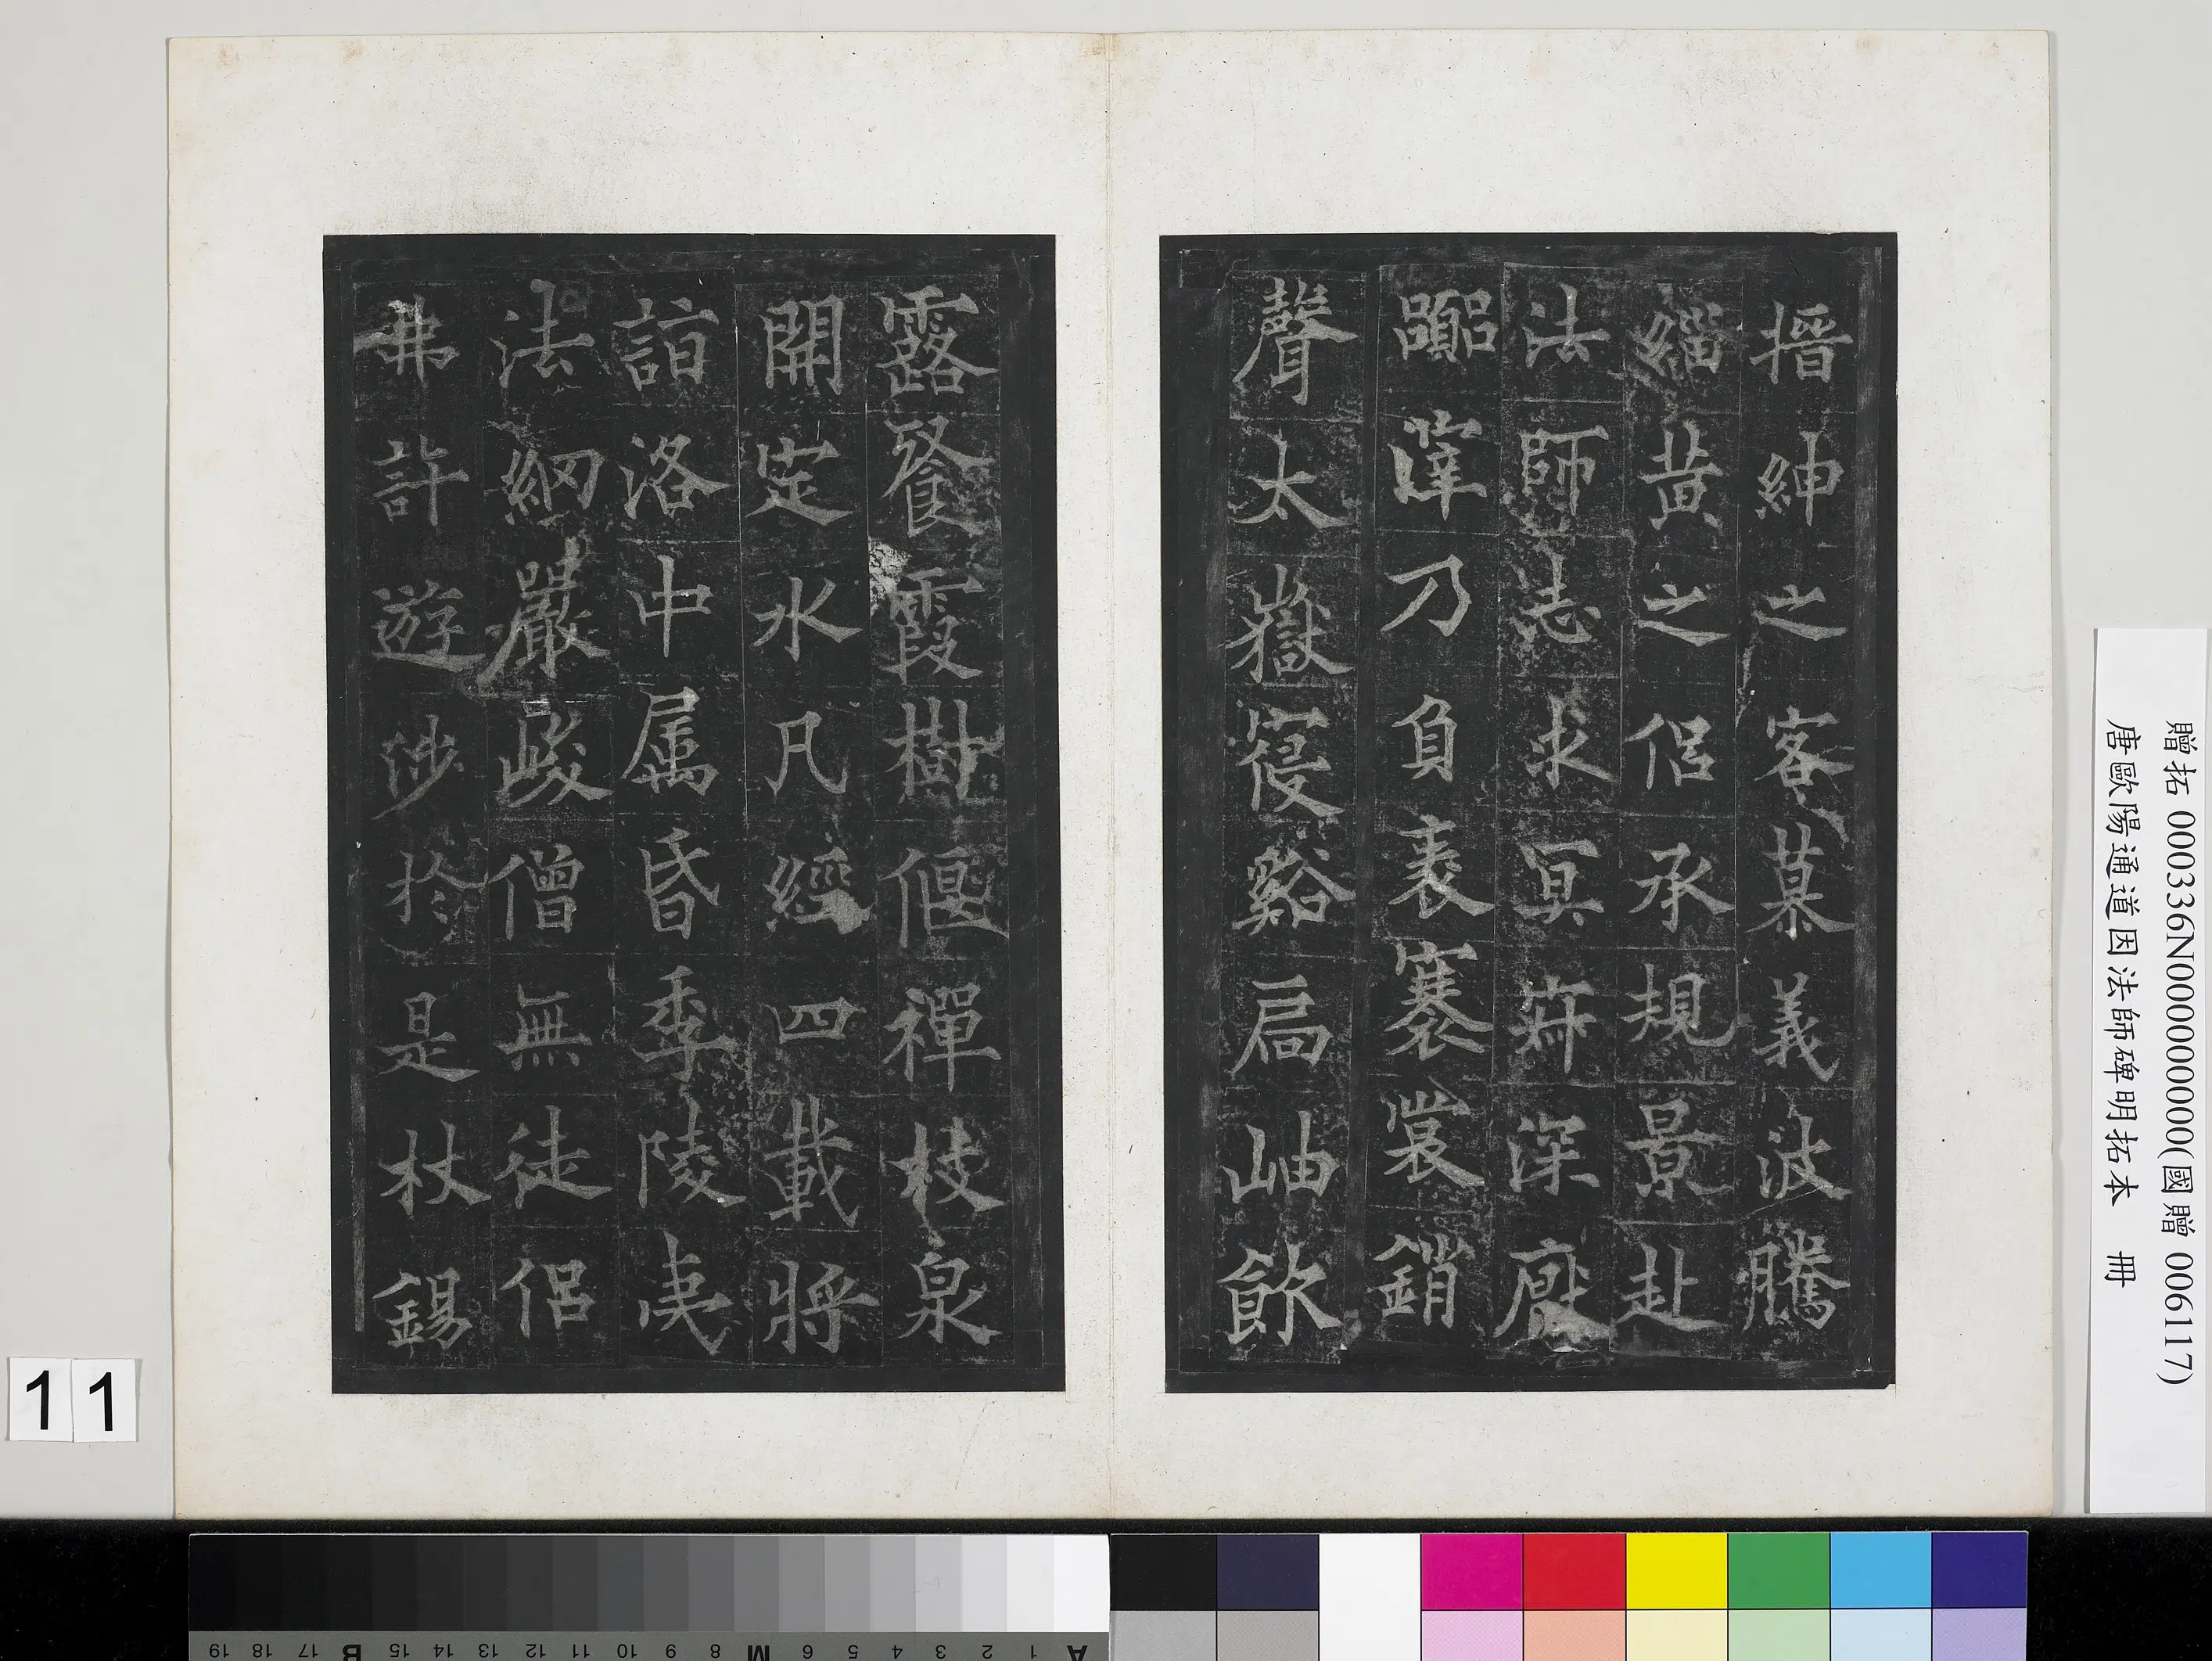 搢紳之客慕義波騰
緇黃之侶承規景赴
法師志求冥寂深厭
囂滓乃負袠褰裳銷
聲太嶽寑谿扃岫飲
露餐霞樹偃禪枝泉
開定水凡經四載將
詣洛中属昏季陵夷
法網嚴峻僧無徒侶
弗許遊涉於是杖錫
贈拓 000336N000000000(國贈 006117)
唐歐陽通道因法師碑明拓本 冊
11
A 1 2 3 4 5 6 M 8 9 10 11 12 13 14 15 B 17 18 19